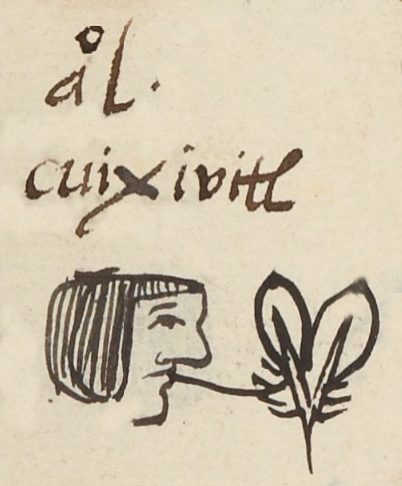 al.
cuixivitl